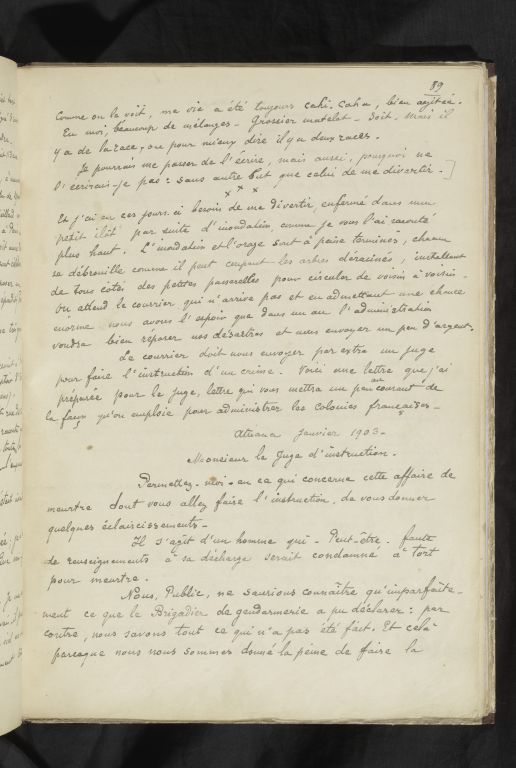 89
Comme on le voit, ma vie a été toujours cahi-caha, bien agitée.
En moi, beaucoup de mélanges - Grossier matelot - Soit. Mais il
y a de la race, ou pour mieux dire il y a deux races.
Je pourrais me passer de l'écrire, mais aussi, pourquoi ne
l'écrirais-je pas : sans autre but que celui de me divertir -
x x x
Et j'ai en ces jours-ci besoin de me divertir, enfermé dans mon
petit îlot par suite d'inondation, comme je vous l'ai raconté
plus haut. L'inondation et l'orage sont à peine terminés, chacun
se débrouille comme il peut coupant les arbres déracinés, installant
de tous côtés des petites passerelles pour circuler de voisin à voisin -
On attend le courrier qui n'arrive pas et en admettant une chance
énorme nous avons l'espoir que dans un an l'administration
voudra bien réparer nos désastres et nous envoyer un peu d'argent.
Le courrier doit nous envoyer par extra un juge
pour faire l'instruction d'un crime. Voici une lettre que j'ai
préparée pour le juge, lettre qui vous mettra un peu au courant de
la façon qu'on emploie pour administrer les colonies françaises -
Atuana Janvier 1903 -
Monsieur le Juge d'instruction -
Permettez-moi - en ce qui concerne cette affaire de
meurtre dont vous allez faire l'instruction, de vous donner
quelques éclaircissements -
Il s'agit d'un homme qui - Peut-être - faute
de renseignements à sa décharge serait condamné à tort
pour meurtre.
Nous, Public, ne saurions connaître qu'imparfaite-
ment ce que le Brigadier de gendarmerie a pu déclarer : par
contre, nous savons tout ce qui n'a pas été fait. Et celà
parceque nous nous sommes donné la peine de faire la